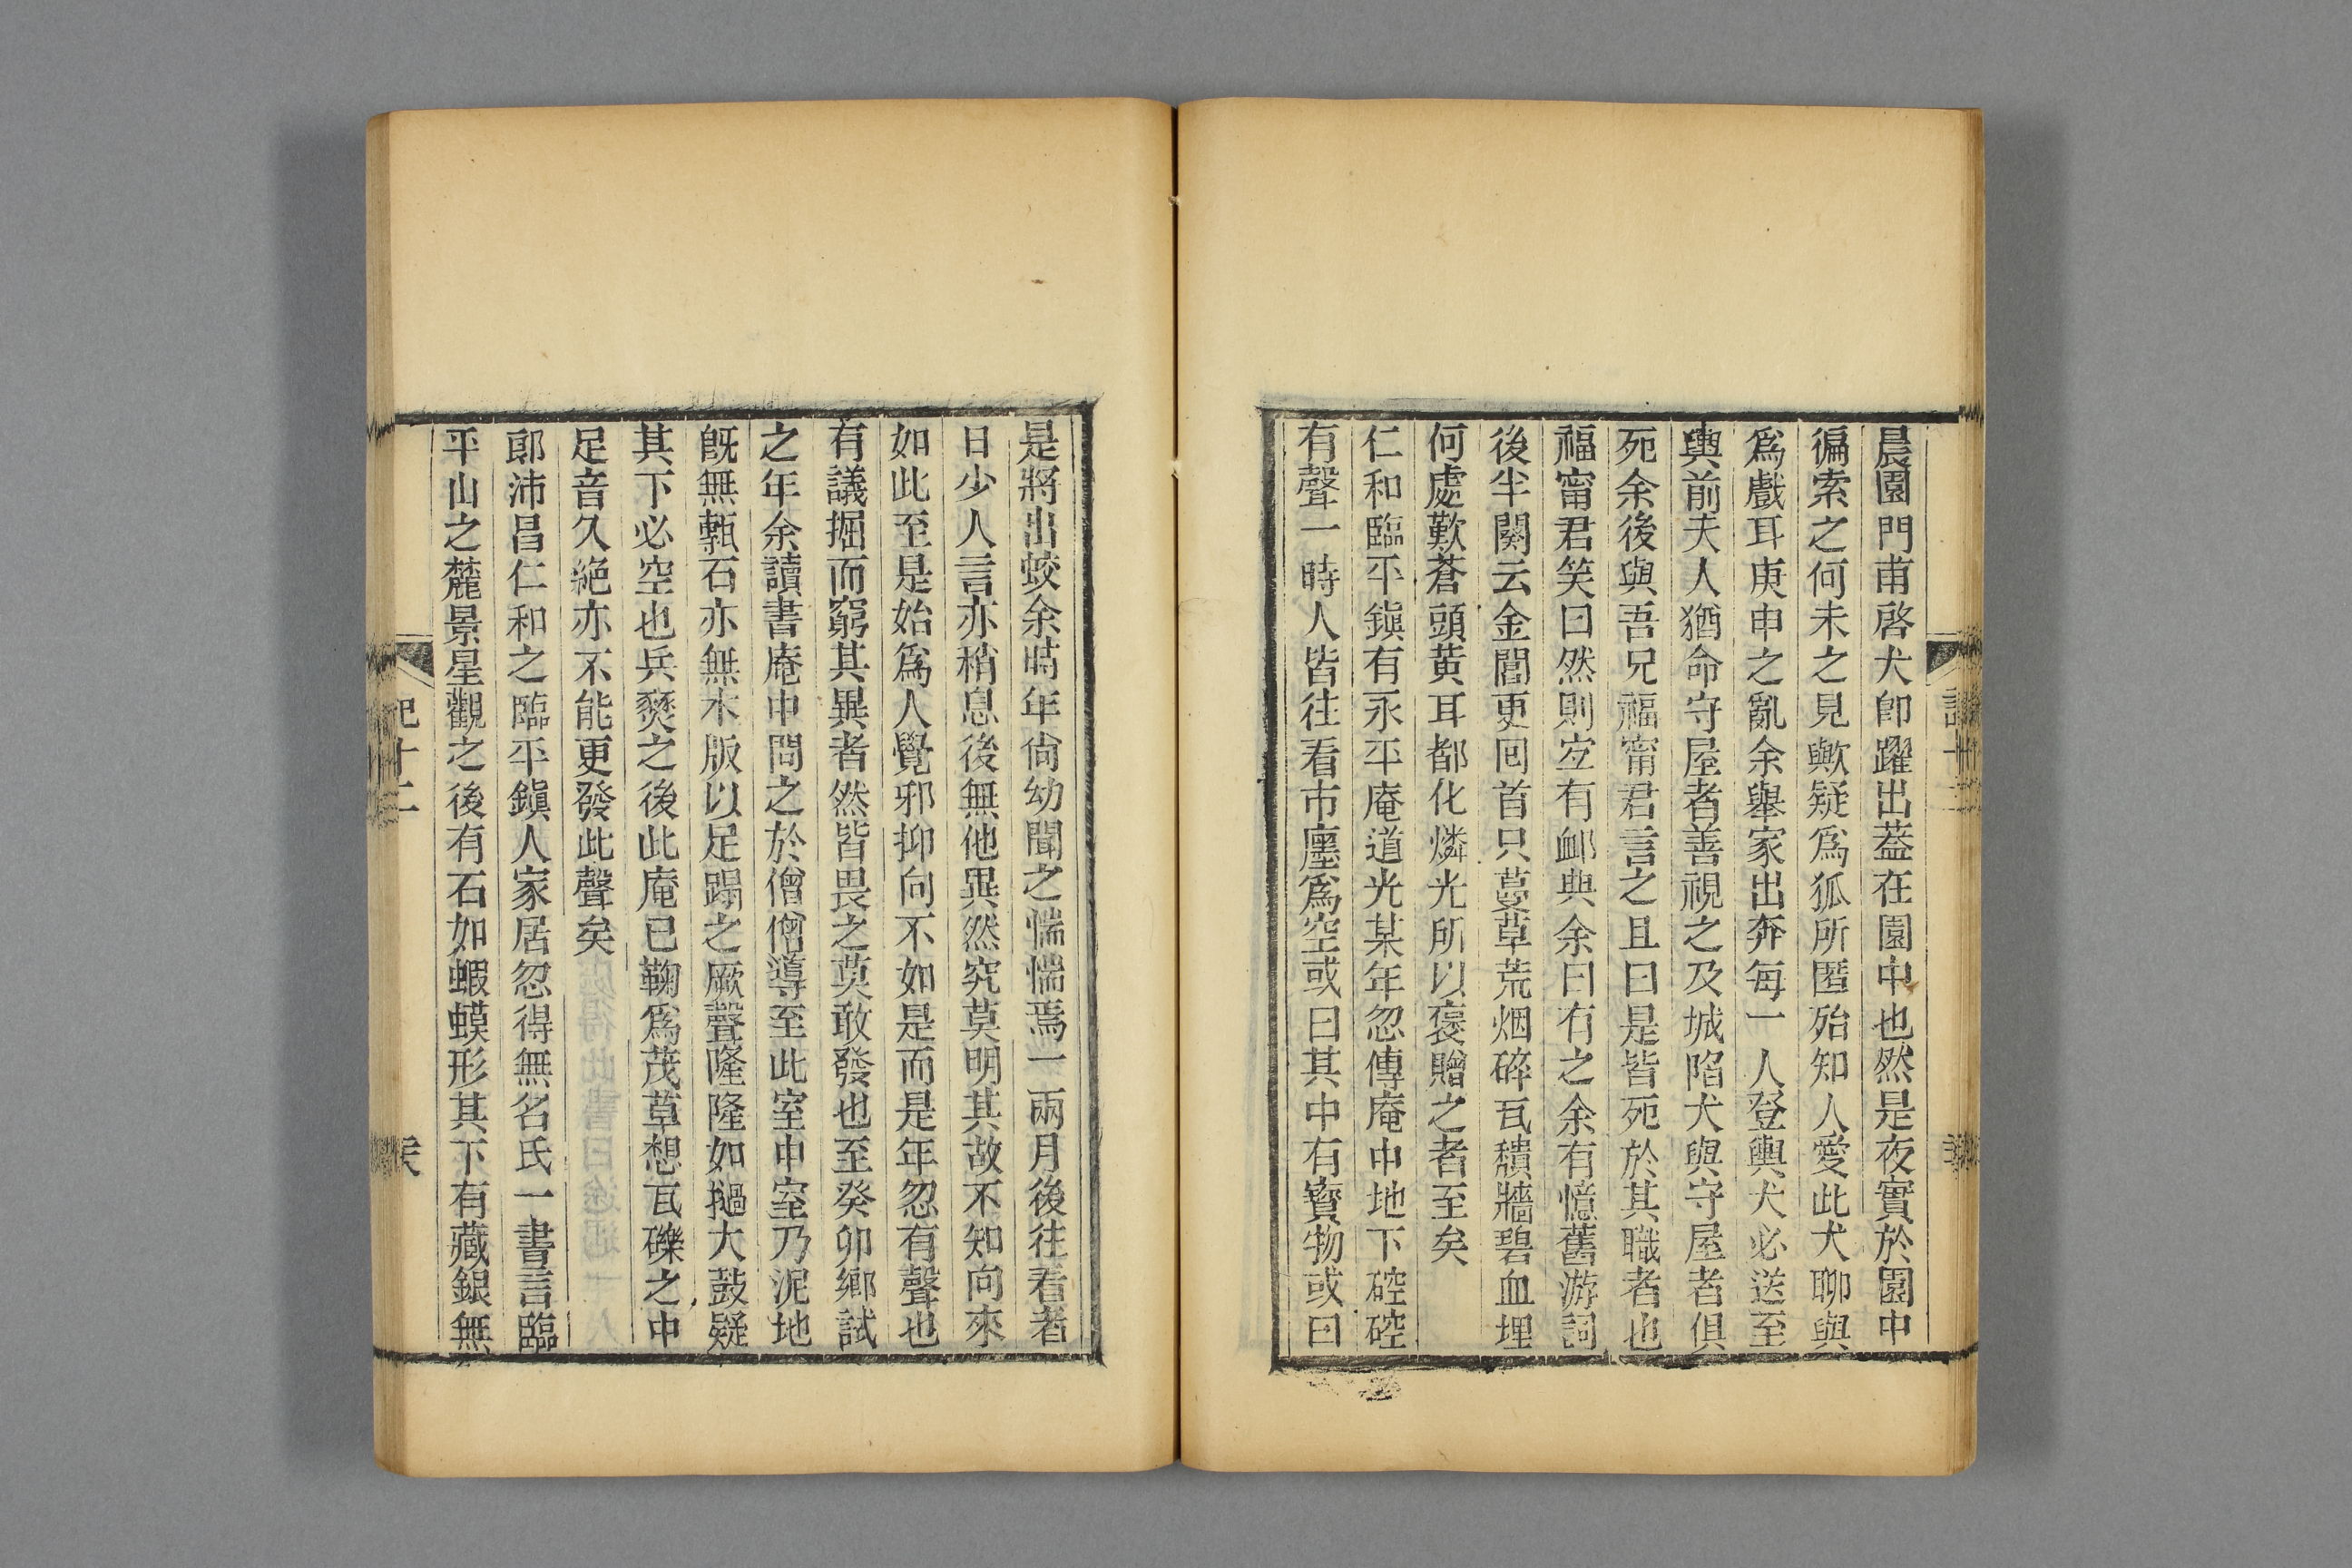 晨園門甫啓犬卽躍出蓋在園中也然是夜實於園中
徧索之何未之見歟疑爲狐所匿殆知人愛此犬聊與
爲戲耳庚申之亂余舉家出奔每一人登輿犬必送至
輿前夫人猶命守屋者善視之及城陷犬與守屋者俱
死余後與吾兄福甯君言之且曰是皆死於其職者也
福甯君笑曰然則宜有卹典余曰有之余有憶舊游詞
後半闋云金閶更回首只蔓草荒烟碎瓦穨牆碧血埋
何處歎蒼頭黃耳都化燐光所以褒贈之者至矣
仁和臨平鎭有永平庵道光某年忽傳庵中地下硿硿
有聲一時人皆往看市廛爲空或曰其中有寶物或曰
是將出蛟余時年尙幼聞之惴惴焉一兩月後往看者
日少人言亦稍息後無他異然究莫明其故不知向來
如此至是始爲人覺邪抑向不如是而是年忽有聲也
有議掘而窮其異者然皆畏之莫敢發也至癸卯鄉試
之年余讀書庵中問之於僧僧導至此室中室乃泥地
旣無甎石亦無木版以足蹋之厥聲隆隆如撾大鼓疑
其下必空也兵燹之後此庵已鞠爲茂草想瓦礫之中
足音久絶亦不能更發此聲矣
郞沛昌仁和之臨平鎭人家居忽得無名氏一書言臨
平山之麓景星觀之後有石如蝦蟆形其下有藏銀無